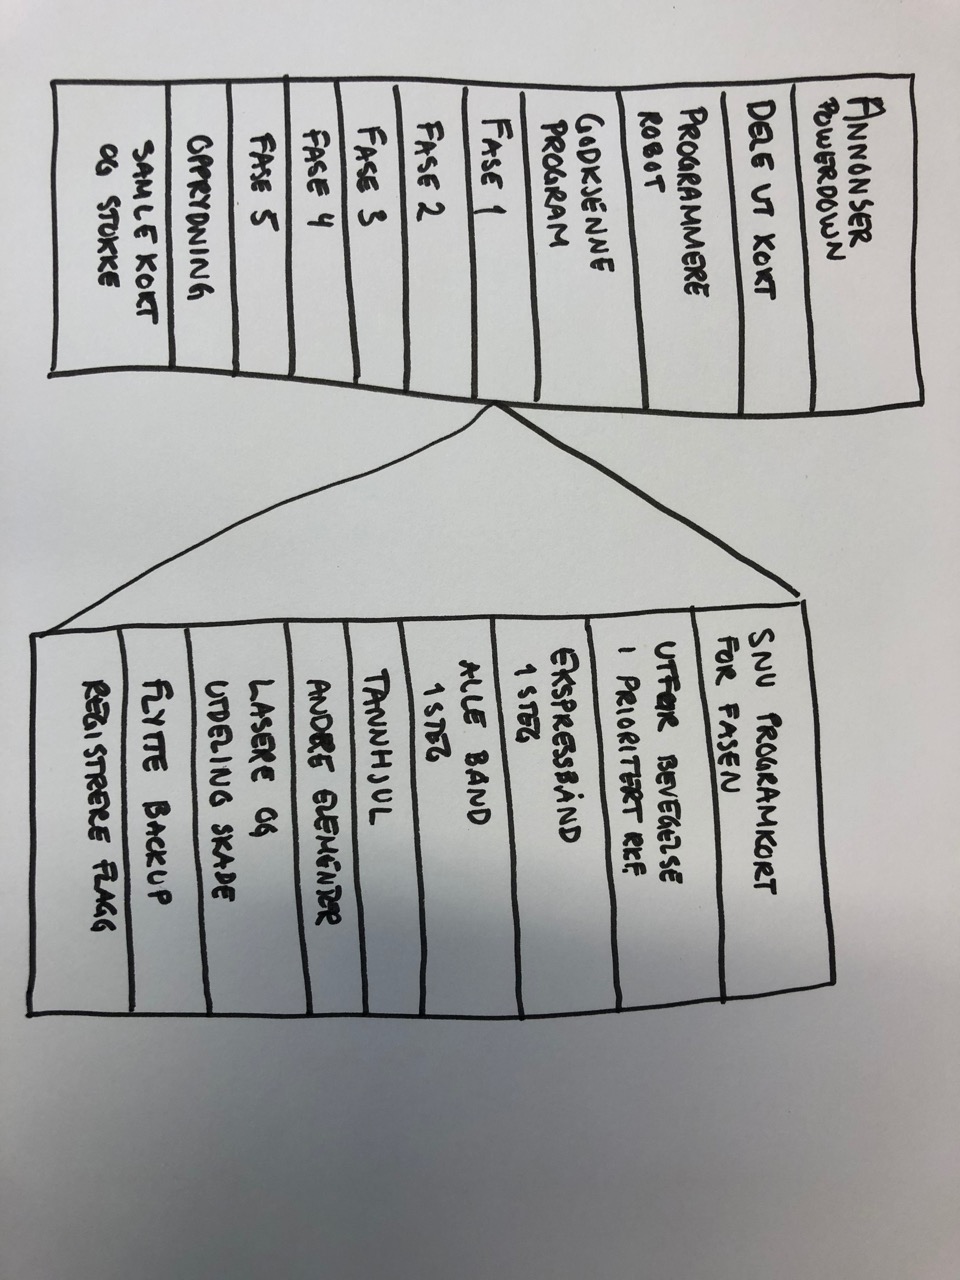 ANNONSER
POWERDOWN
DELE UT KORT
PROGRAMMERE
ROBOT
GODKJENNE
PROGRAM
FASE 1
FASE 2
FASE 3
FASE 4
FASE 5
OPPRYDNING
SAMLE KORT
OG STOKKE
SNU PROGRAMKORT
FOR FASEN
UTFØR BEVEGELSE
I PRIORITERT RKF.
EKSPRESSBÅND
1 STEG
ALLE BÅND
1 STEG
TANNHJUL
ANDRE ELEMENTER
LASERE OG
UTDELING SKADE
FLYTTE BACKUP
REGISTRERE FLAGG